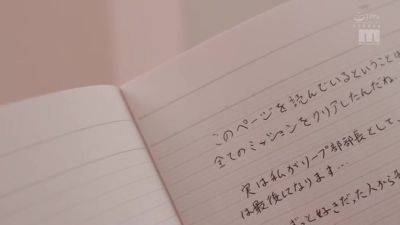 このページを読んでいるということは
全てのミッションをクリアしたんだね。
実は私がリープ部部長として、
は最後になります…
ずっと好きだった人から